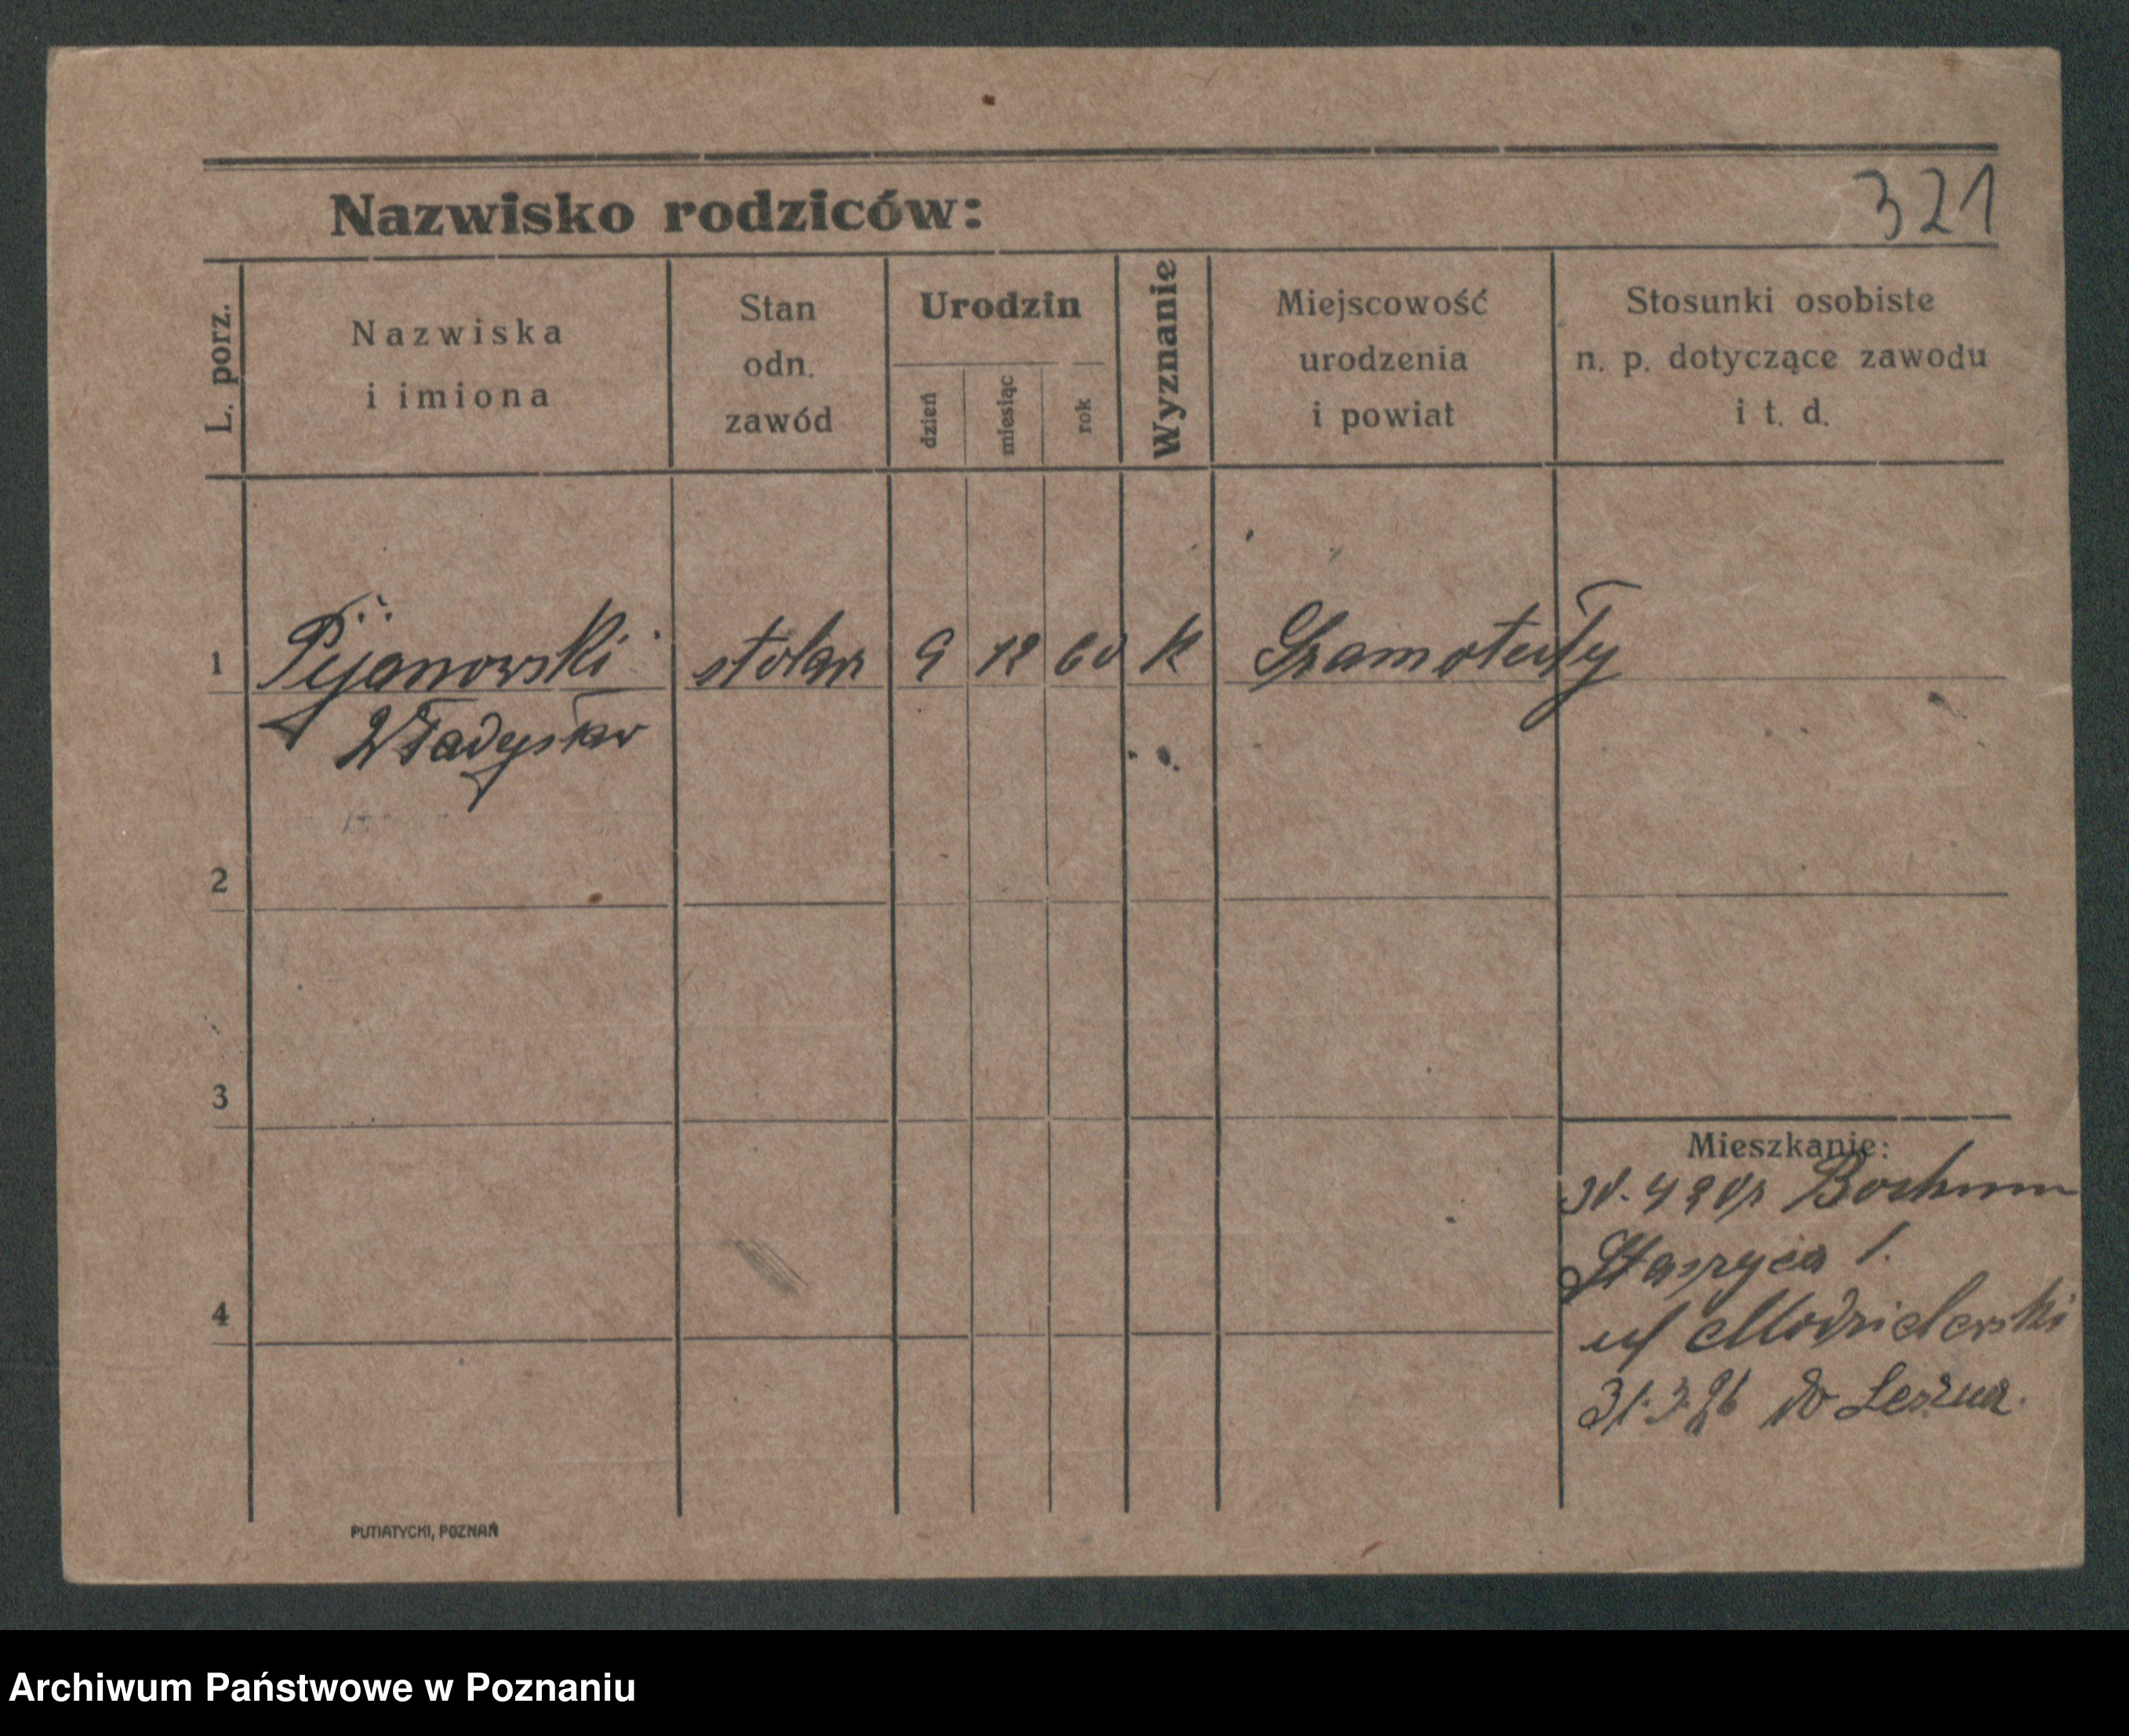 321
Nazwisko rodziców:
L. porz.
Nazwiska
i imiona
Stan
odn.
zawód
Urodzin
dzień
miesiąc
rok
Wyznanie
Miejscowość
urodzenia
i powiat
Stosunki osobiste
n. p. dotyczące zawodu
i t. d.
1 Pijanowski stolarz 9 12 60 K Szamotuły
Władysław
2
3
4
Mieszkanie:
Bochum
Staszyca 1.
31.3.26 do Leszna.
PUTIATYCKI, POZNAŃ
Archiwum Państwowe w Poznaniu